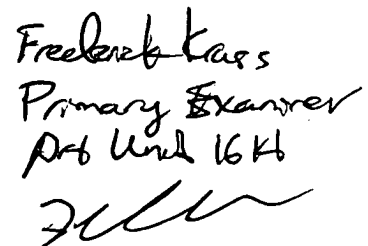 Frederick Krass
Primary Examiner
Art Unit 16